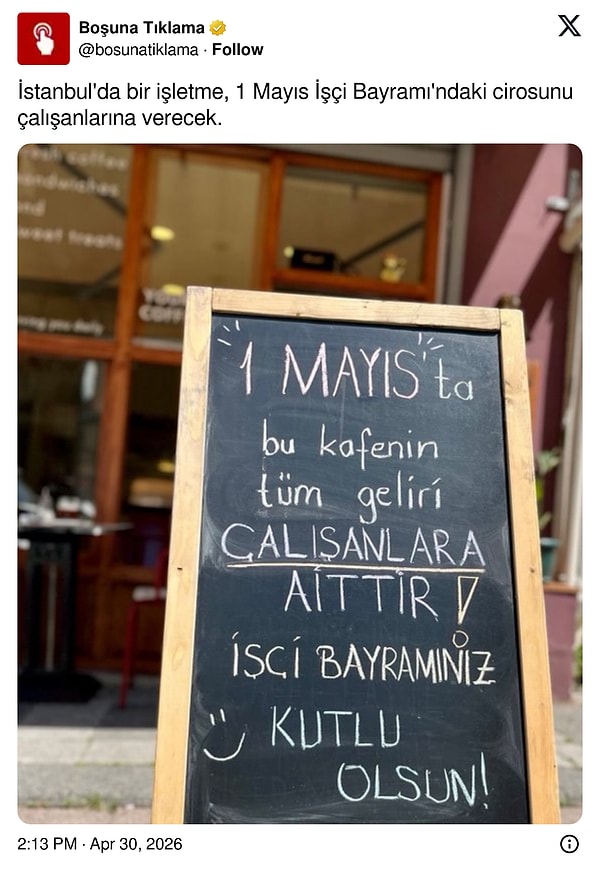 Boşuna Tıklama
@bosunatiklama · Follow
İstanbul'da bir işletme, 1 Mayıs İşçi Bayramı'ndaki cirosunu
çalışanlarına verecek.
fresh coffee
sandwiches
and
sweet treats
1 MAYIS'ta
bu kafenin
tüm geliri
ÇALIŞANLARA
AİTTİR!
İŞÇİ BAYRAMINIZ
KUTLU
OLSUN!
2:13 PM · Apr 30, 2026